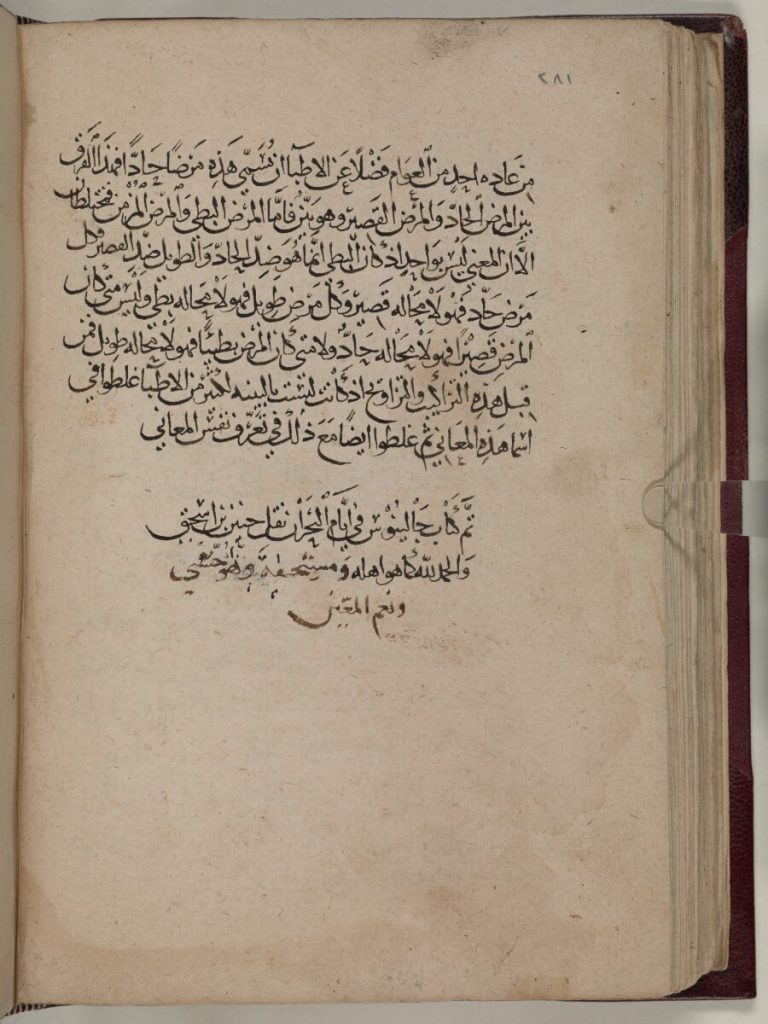 ٢٨١
من عاده احدٍ من العوام فَضْلًا عن الاطبآ ان يُسَمّي هَذِهِ مَرَضًا حَادًّا فهذا الفَرَق
بين المرض الحادّ والمرض القصير وهو بيّن فامّا المرض البطي والمرض المُزمن فيختلطان
الّا ان المعني ليس بواحدٍ اذ كان البطي انما هو ضدّ الحادّ والطويل ضدّ القصير وكل
مَرَض حَادّ فهو لا محاله قصير وكل مَرَض طويل فهو لا محاله بطي وليس متي كان
المرض قصيرًا فهو لا محاله حادٌّ ولا متي كان المرض بطيئًا فهو لا محاله طويل فمن
قبل هذه التراكيب والتزاويج اذ كانت ليست بالبينه لكثير من الاطبآ غلطوا في
اسما هذه المعاني ثم غلطوا ايضًا مَعَ ذلك في تعرّف نفس المعاني
تمَّ كتاب جَالينُوسَ في ايَّام البُحْرَان نقل حنين بن اسحق
والحمد لله كما هو اهله ومستحقه وهو حَسْبي
ونعم المعين